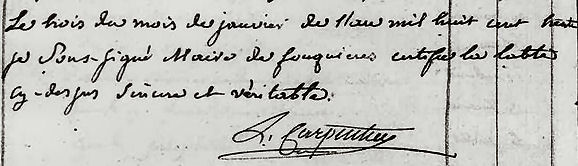 Le trois du mois de janvier de l'an mil huit cent trente
je Sous-signé Maire de fouquieres certifie la table
cy-dessus Sincere et véritable.
L. Carpentier